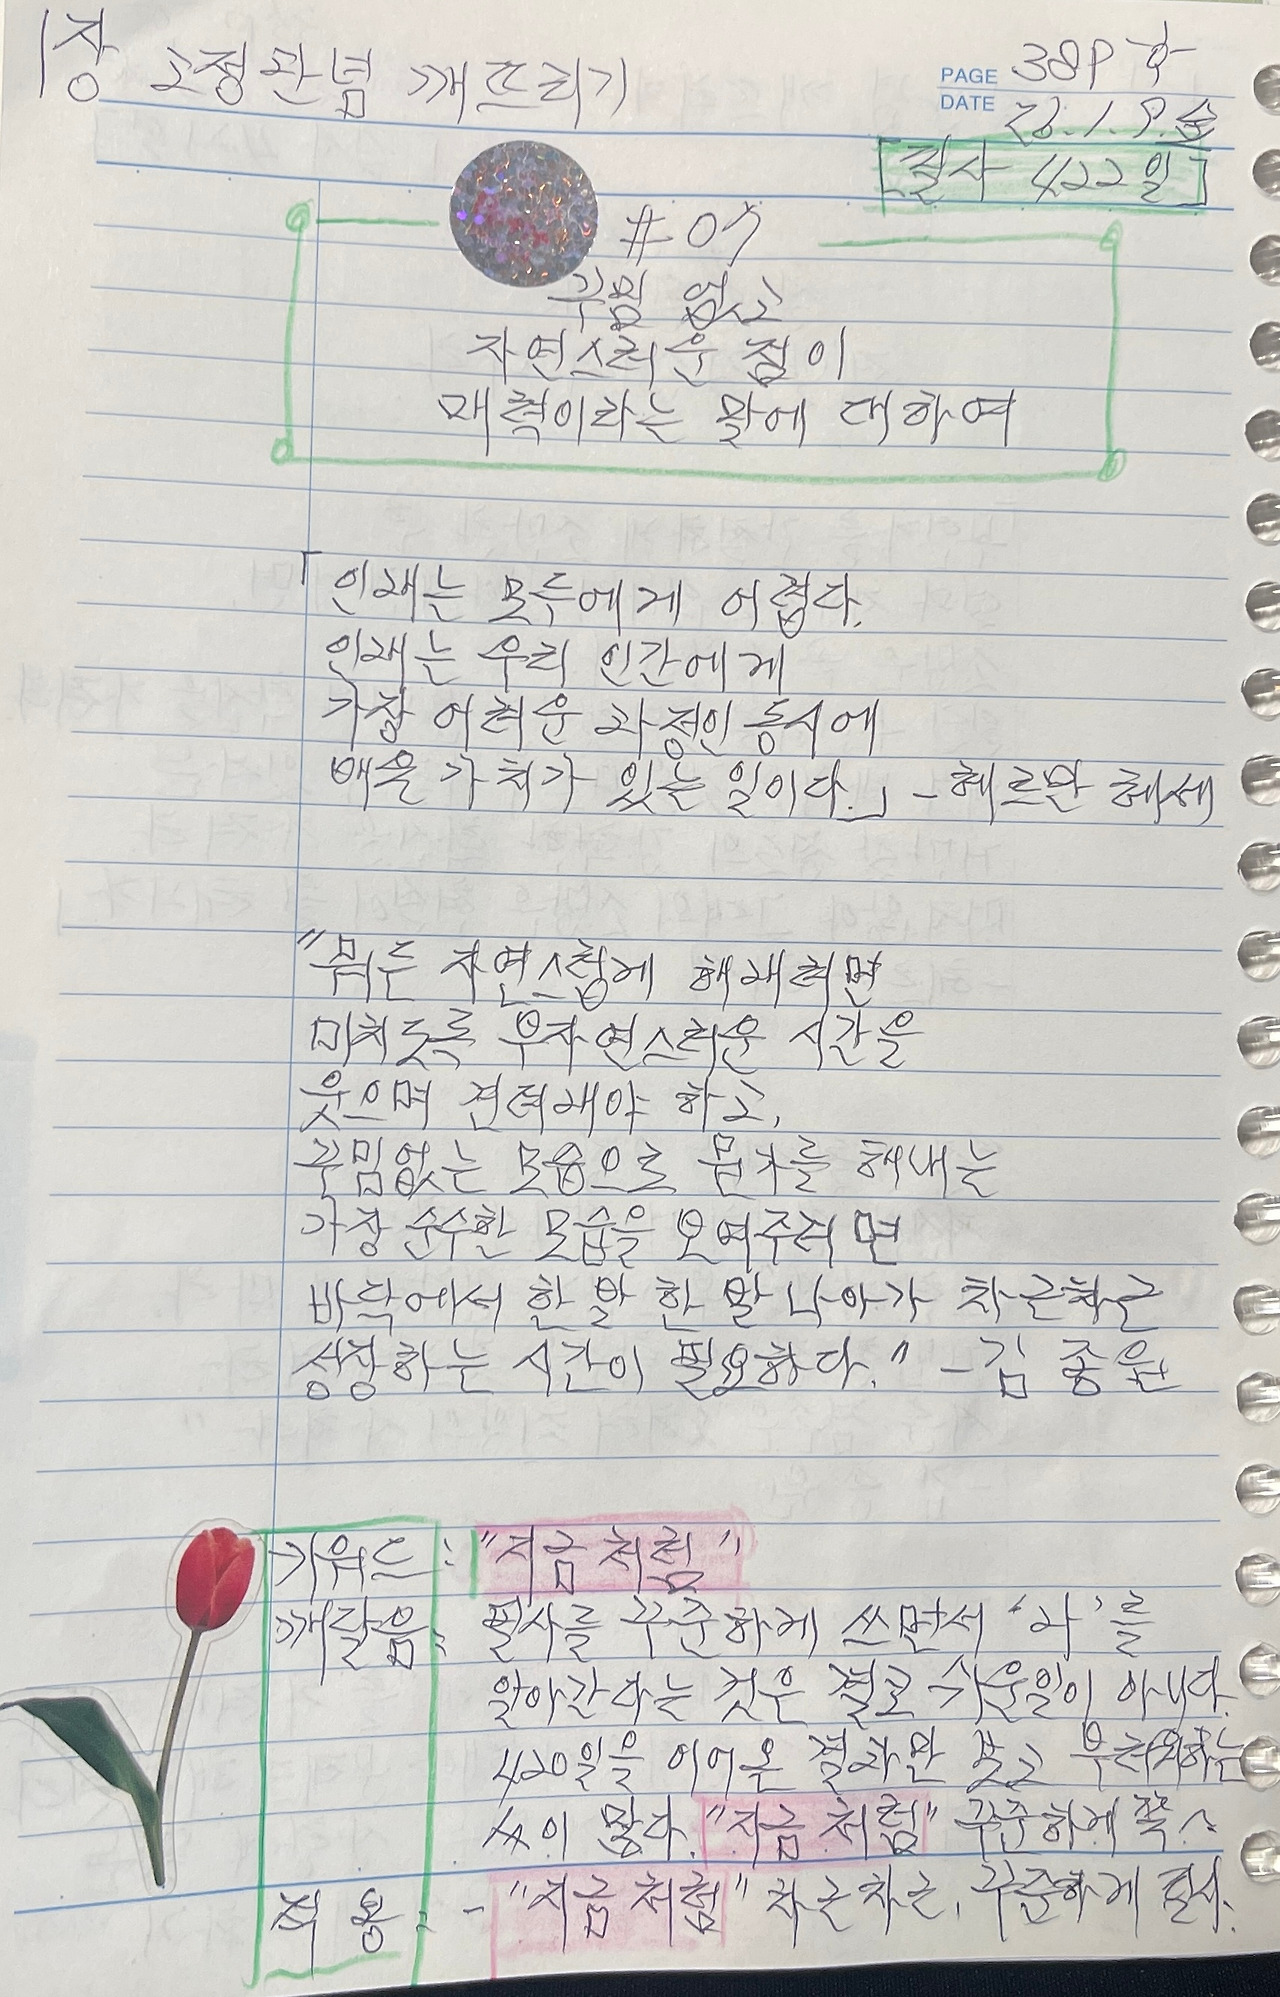 1장 고정관념 깨뜨리기
PAGE 38P 中
DATE 23.1.9.
필사 422일
#07
꾸밈 없고
자연스러운 점이
매력이라는 말에 대하여
「인내는 모두에게 어렵다.
인내는 우리 인간에게
가장 어려운 과정인 동시에
배울 가치가 있는 일이다.」 -헤르만 헤세
"뭐든 자연스럽게 해내려면
미치도록 부자연스러운 시간을
웃으며 견뎌내야 하고,
꾸밈없는 모습으로 뭔가를 해내는
가장 순수한 모습을 보여주려면
바닥에서 한 발 한 발 나아가 차근차근
성장하는 시간이 필요하다." -김종원
키워드 : "지금 처럼"
깨달음 : 필사를 꾸준하게 쓰면서 '나'를
알아간다는 것은 결코 쉬운일이 아니다.
420일을 이어온 결과만 보고 부러워하는
사이 많다. "지금 처럼" 꾸준하게 쭉~
적용 : - "지금 처럼" 차근차근, 꾸준하게 필사.